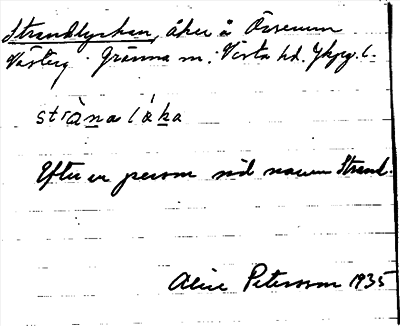 Strandlyckan, åker å Örserum
Västerg. Gränna sn. Vista hd. Jkpg. l.
stràna láka
Efter en person vid namn Strand.
Alice Petersson 1935